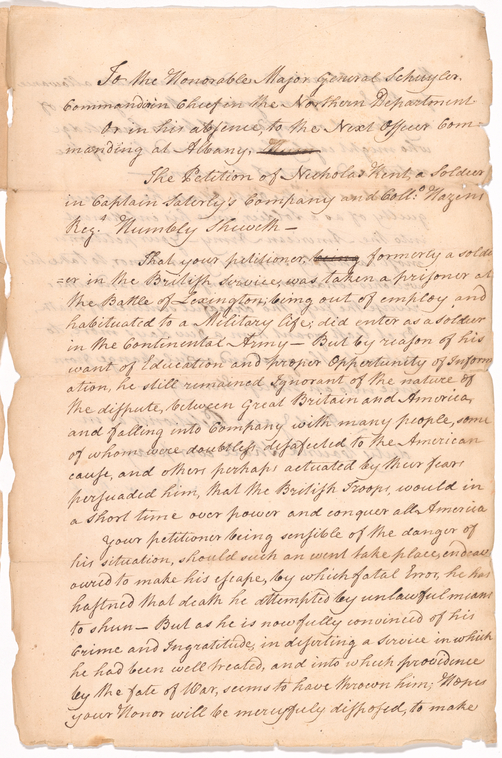 To the Honorable Major General Schuyler.
Command'r in Chief in the Northern Department
Or in his absence, to the Next Officer Com-
manding at Albany,
The Petition of Nicholas Kent, a Soldier
in Captain Saterly's Company and Coll.o Hazens
Reg.t Humbly Sheweth —
That your petitioner, being formerly a soldi
=er in the British service, was taken a prisoner at
the Batle of Lexington, being out of employ and
habituated to a Military life, did enter as a soldier
in the Continental Army — But by reason of his
want of Education and proper Opportunity of Inform
ation, he still remained Ignorant of the nature of
the dispute, between Great Britain and America,
and falling into Company with many people, some
of whom were doubtless disafected to the American
cause, and others perhaps actuated by their fears
persuaded him, that the British Troops, would in
a short time over power and conquer all America
Your petitioner being sensible of the danger of
his situation, should such an event take place, endeav
oured to make his escape, by which fatal Error, he has
hastned that death he attempted by unlawful means
to shun — But as he is now fully convinced of his
Crime and Ingratitude, in deserting a service in which
he had been well treated, and into which providence
by the fate of War, seems to have thrown him; Hopes
your Honor will be mercyfuly disposed, to make